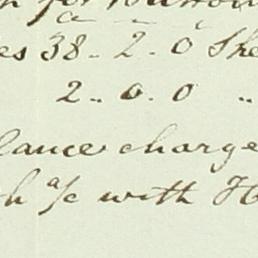 for
es 38 .. 2 .. 0 She
2 .. 0 . 0 ..
lance charge
h a/c with H